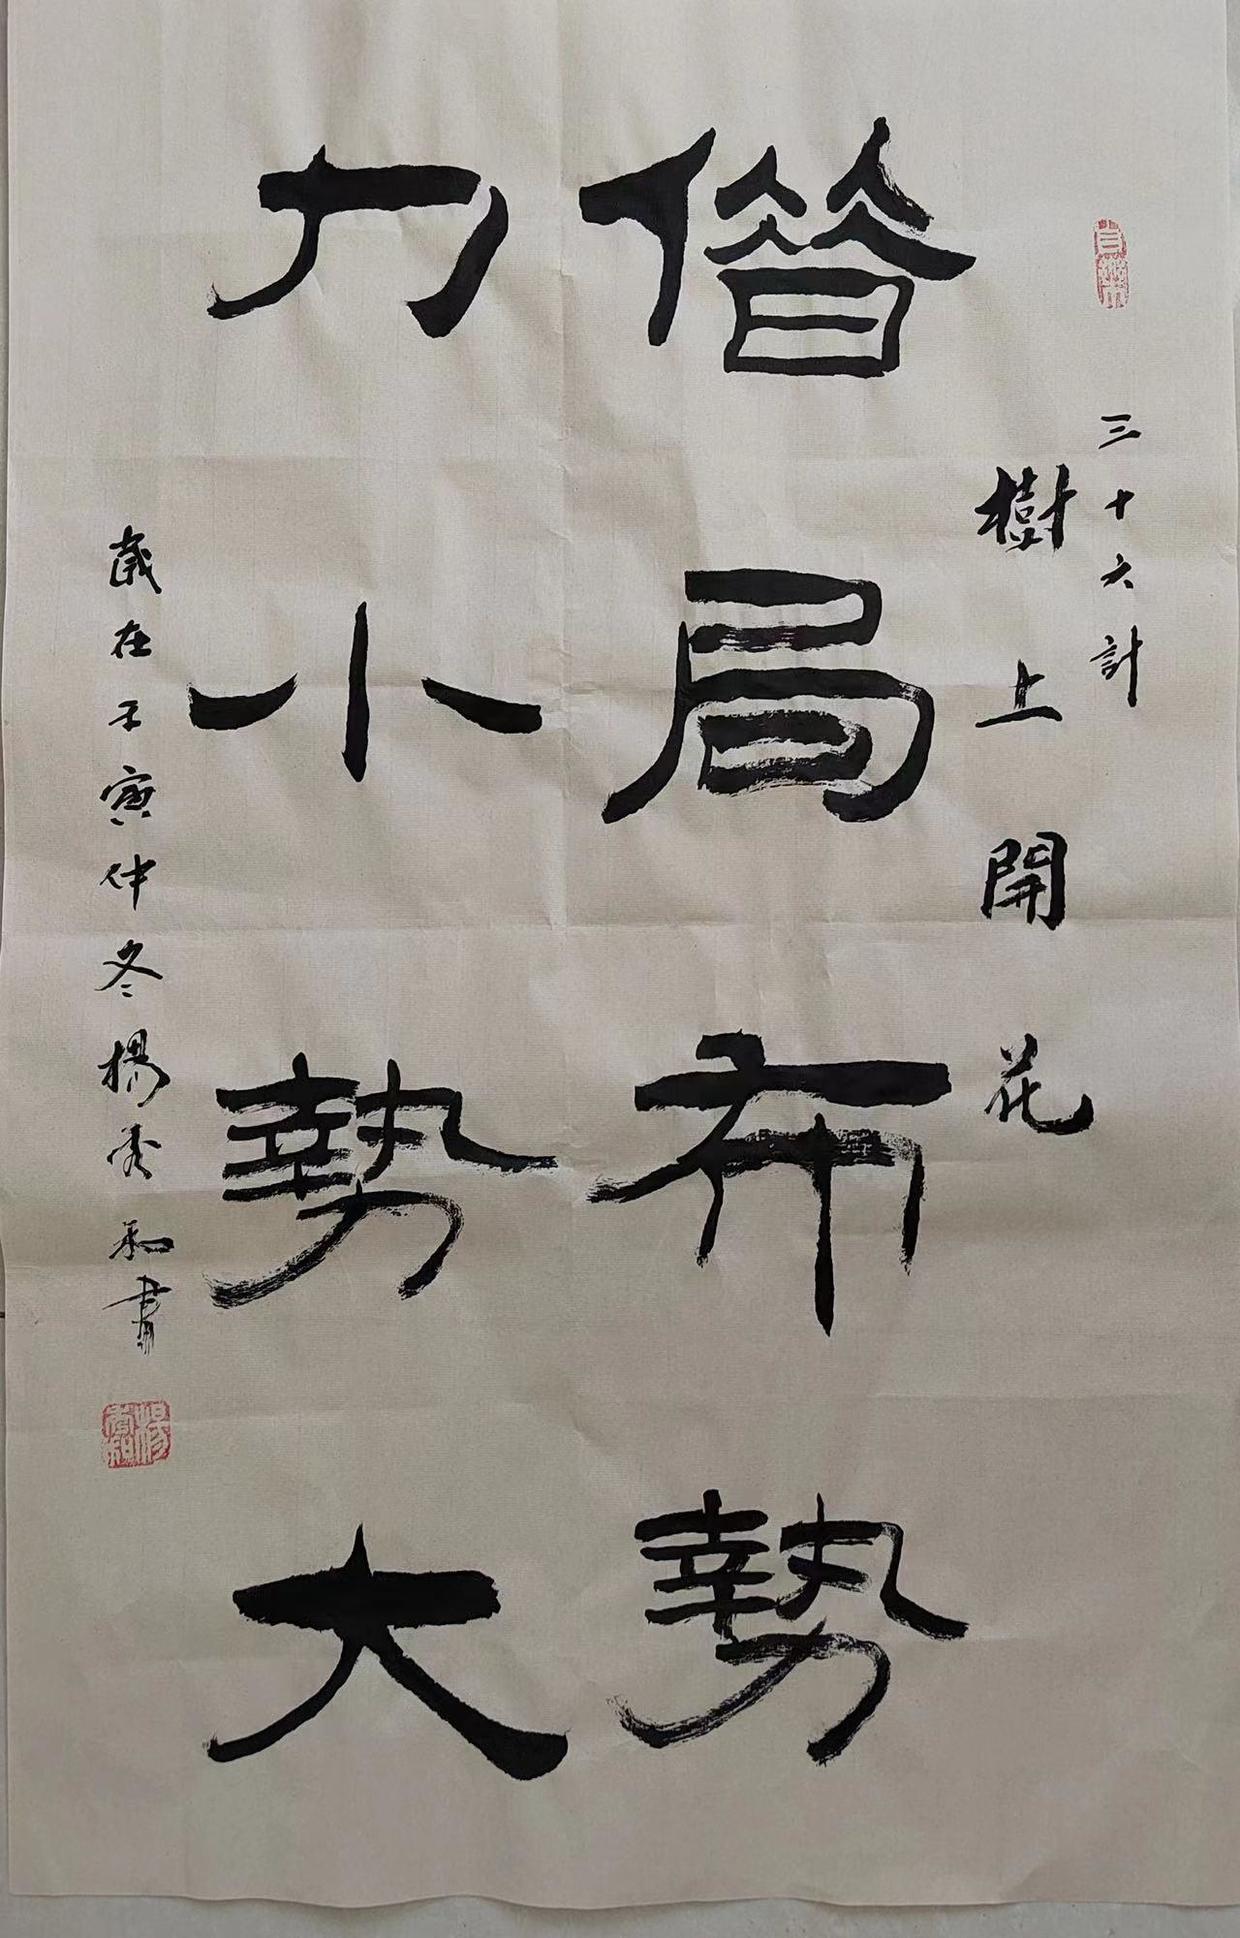 三十六計
樹上開花
借局布勢
力小勢大
歲在壬寅仲冬楊書